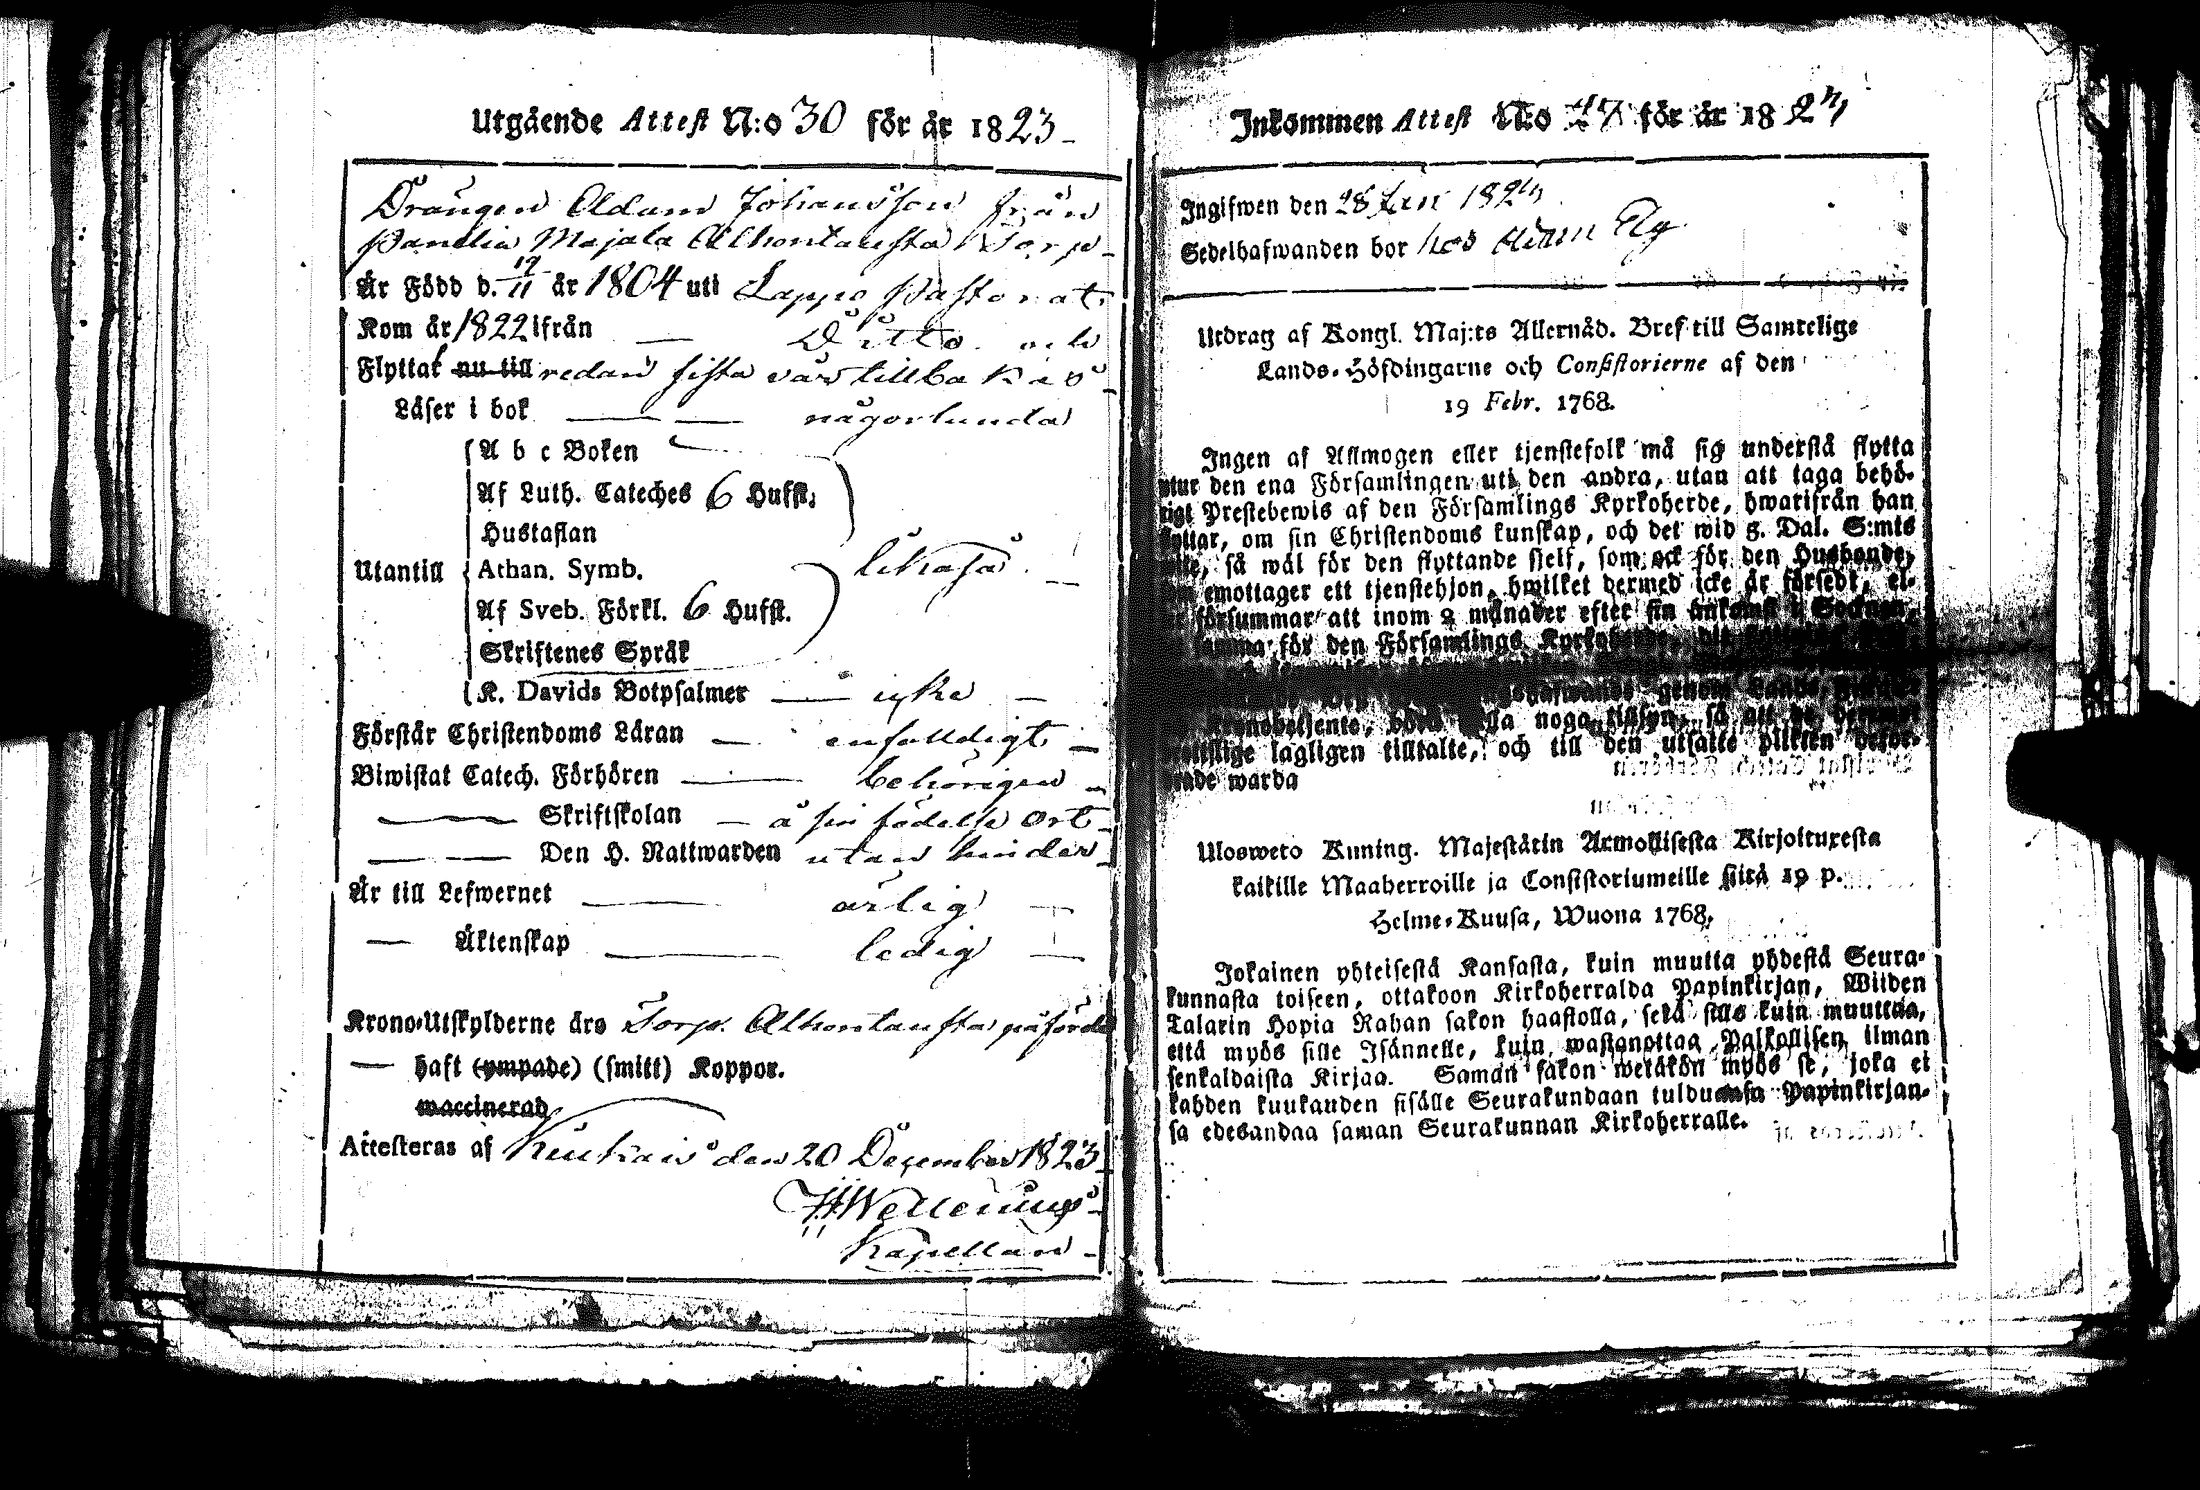 Utgående Attest N:o 30 för år 1823
Drängen Adam Johansson från
Panelia Majala Alhontausta Torp
Är Född d. 19/11 år 1804 uti Lappo Pastorat
Kom år 1822 ifrån — Ditto och
Flyttat nu till redan sista vår tillbakas
Läser i bok — — någorlunda
A b c Boken
Af Luth. Cateches 6 Hufst.
Hustaflan
Utantill Athan. Symb. likaså
Af Sveb. Förkl. 6 Hufst.
Skriftenes Språk
K. Davids Botpsalmer — icke —
Förstår Christendoms Läran — enfaldigt —
Biwistat Catech. Förhören — behörigen
— Skriftskolan — å sin födelse ort
— — Den H. Nattwarden utan hinder
Är till Lefwernet — ärlig —
— Äktenskap — ledig —
Krono-Utskylderne äro Torp. Alhontausta påförde
— haft (ympade) (smitt) Koppor.
waccinerad
Attesteras af Kiukais den 20 December 1823
Kapellan
Inkommen Attest N:o för år 1824
Ingifwen den 28 Jan 1824
Sedelhafwanden bor hos
Utdrag af Kongl. Maj:ts Allernåd. Bref till Samtelige
Lands-Höfdingarne och Consistorierne af den
19 Febr. 1768.
Ingen af Allmogen eller tjenstefolk må sig understå flytta
utur den ena Församlingen uti den andra, utan att taga behö-
rigt Prestebewis af den Församlings Kyrkoherde, hwarifrån han
flyttar, om sin Christendoms kunskap, och det wid 5. Dal. S:mts
wite, så wäl för den flyttande sielf, som ock för den Husbonde,
som emottager ett tjenstehjon, hwilket dermed icke är försedt, el-
ler försummar att inom 2 månader efter sin ankomst i Socknen,
samma för den Församlings Kyrkoherde,
genom Lands
Kronobetjente, noga tillsyn, så att de
lagligen tilltalte, och till den utsatte plikten befor-
drade warda
Ulosweto Kuning. Majestätin Armollisesta Kirjoituxesta
kaikille Maaherroille ja Consistoriumeille siitä 19 p.
Helme-Kuusa, Wuona 1768.
Jokainen yhteisestä Kansasta, kuin muutta yhdestä Seura-
kunnasta toiseen, ottakoon Kirkoherralda Papinkirjan, Wiiden
Talarin Hopia Rahan sakon haastolla, sekä sille kuin muuttaa,
että myös sille Isännelle, kuin wastanottaa Palkollisen ilman
senkaldaista Kirjaa. Saman sakon wetäkön myös se, joka ei
kahden kuukauden sisälle Seurakundaan tulduansa Papinkirjan-
sa edesandaa saman Seurakunnan Kirkoherralle.